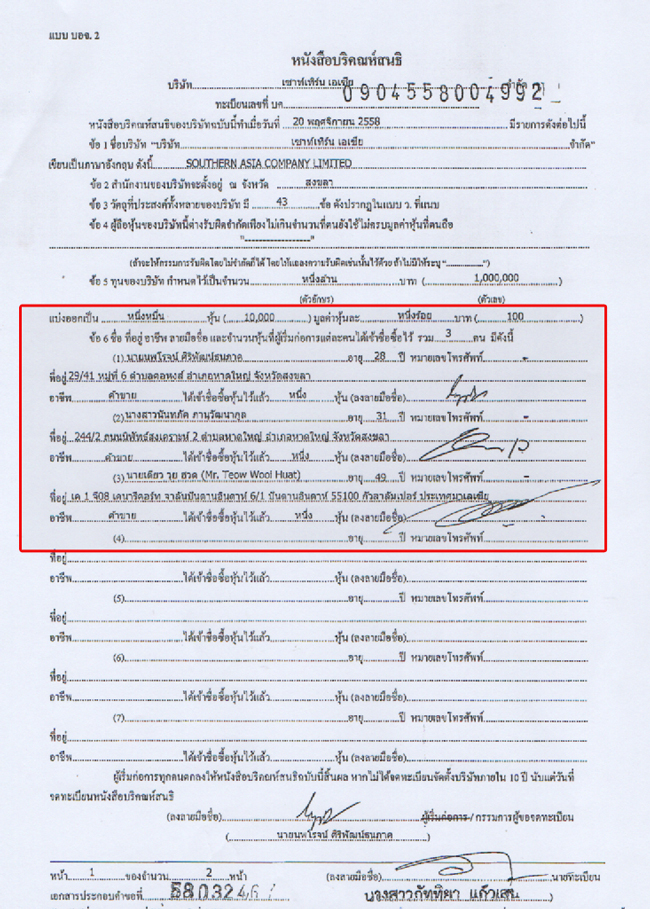 แบบ บอจ. 2
หนังสือบริคณห์สนธิ
บริษัท เซาท์เทิร์น เอเชีย จำกัด
ทะเบียนเลขที่ บค. 0904558004992
หนังสือบริคณห์สนธิของบริษัทฉบับนี้ทำเมื่อวันที่ 20 พฤศจิกายน 2558 มีรายการดังต่อไปนี้
ข้อ 1 ชื่อบริษัท "บริษัท เซาท์เทิร์น เอเชีย จำกัด"
เขียนเป็นภาษาอังกฤษ ดังนี้ SOUTHERN ASIA COMPANY LIMITED
ข้อ 2 สำนักงานของบริษัทจะตั้งอยู่ ณ จังหวัด สงขลา
ข้อ 3 วัตถุที่ประสงค์ทั้งหลายของบริษัท มี 43 ข้อ ดังปรากฏในแบบ ว. ที่แนบ
ข้อ 4 ผู้ถือหุ้นของบริษัทนี้ต่างรับผิดจำกัดเพียงไม่เกินจำนวนที่ตนยังใช้ไม่ครบมูลค่าหุ้นที่ตนถือ
"--------------------"
(ถ้าจะให้กรรมการรับผิดโดยไม่จำกัดก็ได้ โดยให้แถลงความรับผิดเช่นนั้นไว้ด้วย ถ้าไม่มีให้ระบุ "..............")
ข้อ 5 ทุนของบริษัท กำหนดไว้เป็นจำนวน หนึ่งล้าน บาท ( 1,000,000 )
(ตัวอักษร) (ตัวเลข)
แบ่งออกเป็น หนึ่งหมื่น หุ้น ( 10,000 ) มูลค่าหุ้นละ หนึ่งร้อย บาท ( 100 )
ข้อ 6 ชื่อ ที่อยู่ อาชีพ ลายมือชื่อ และจำนวนหุ้นที่ผู้เริ่มก่อการแต่ละคนได้เข้าชื่อซื้อไว้ รวม 3 คน มีดังนี้
(1) นายนพโรจน์ ศิริพัฒน์ธนภาค อายุ 28 ปี หมายเลขโทรศัพท์ -
ที่อยู่ 29/41 หมู่ที่ 6 ตำบลคอหงส์ อำเภอหาดใหญ่ จังหวัดสงขลา
อาชีพ ค้าขาย ได้เข้าชื่อซื้อหุ้นไว้แล้ว หนึ่ง หุ้น (ลงลายมือชื่อ)
(2) นางสาวนันทภัค ภานุวัฒนากุล อายุ 31 ปี หมายเลขโทรศัพท์ -
ที่อยู่ 244/2 ถนนนิพัทธ์สงเคราะห์ 2 ตำบลหาดใหญ่ อำเภอหาดใหญ่ จังหวัดสงขลา
อาชีพ ค้าขาย ได้เข้าชื่อซื้อหุ้นไว้แล้ว หนึ่ง หุ้น (ลงลายมือชื่อ)
(3) นายเตียว วุย ฮวด (Mr. Teow Wooi Huat) อายุ 49 ปี หมายเลขโทรศัพท์ -
ที่อยู่ เค 1 จี08 เคนารีคอร์ท จาลันปันดานอินดาห์ 6/1 ปันดานอินดาห์ 55100 กัวลาลัมเปอร์ ประเทศมาเลเซีย
อาชีพ ค้าขาย ได้เข้าชื่อซื้อหุ้นไว้แล้ว หนึ่ง หุ้น (ลงลายมือชื่อ)
(4) อายุ ปี หมายเลขโทรศัพท์
ที่อยู่
อาชีพ ได้เข้าชื่อซื้อหุ้นไว้แล้ว หุ้น (ลงลายมือชื่อ)
(5) อายุ ปี หมายเลขโทรศัพท์
ที่อยู่
อาชีพ ได้เข้าชื่อซื้อหุ้นไว้แล้ว หุ้น (ลงลายมือชื่อ)
(6) อายุ ปี หมายเลขโทรศัพท์
ที่อยู่
อาชีพ ได้เข้าชื่อซื้อหุ้นไว้แล้ว หุ้น (ลงลายมือชื่อ)
(7) อายุ ปี หมายเลขโทรศัพท์
ที่อยู่
อาชีพ ได้เข้าชื่อซื้อหุ้นไว้แล้ว หุ้น (ลงลายมือชื่อ)
ผู้เริ่มก่อการทุกคนตกลงให้หนังสือบริคณห์สนธิฉบับนี้สิ้นผล หากไม่ได้จดทะเบียนจัดตั้งบริษัทภายใน 10 ปี นับแต่วันที่
จดทะเบียนหนังสือบริคณห์สนธิ
(ลงลายมือชื่อ) ผู้เริ่มก่อการ / กรรมการผู้ขอจดทะเบียน
( นายนพโรจน์ ศิริพัฒน์ธนภาค )
หน้า 1 ของจำนวน 2 หน้า (ลงลายมือชื่อ) นายทะเบียน
เอกสารประกอบคำขอที่ ( นางสาวกัททิยา แก้วเสน )